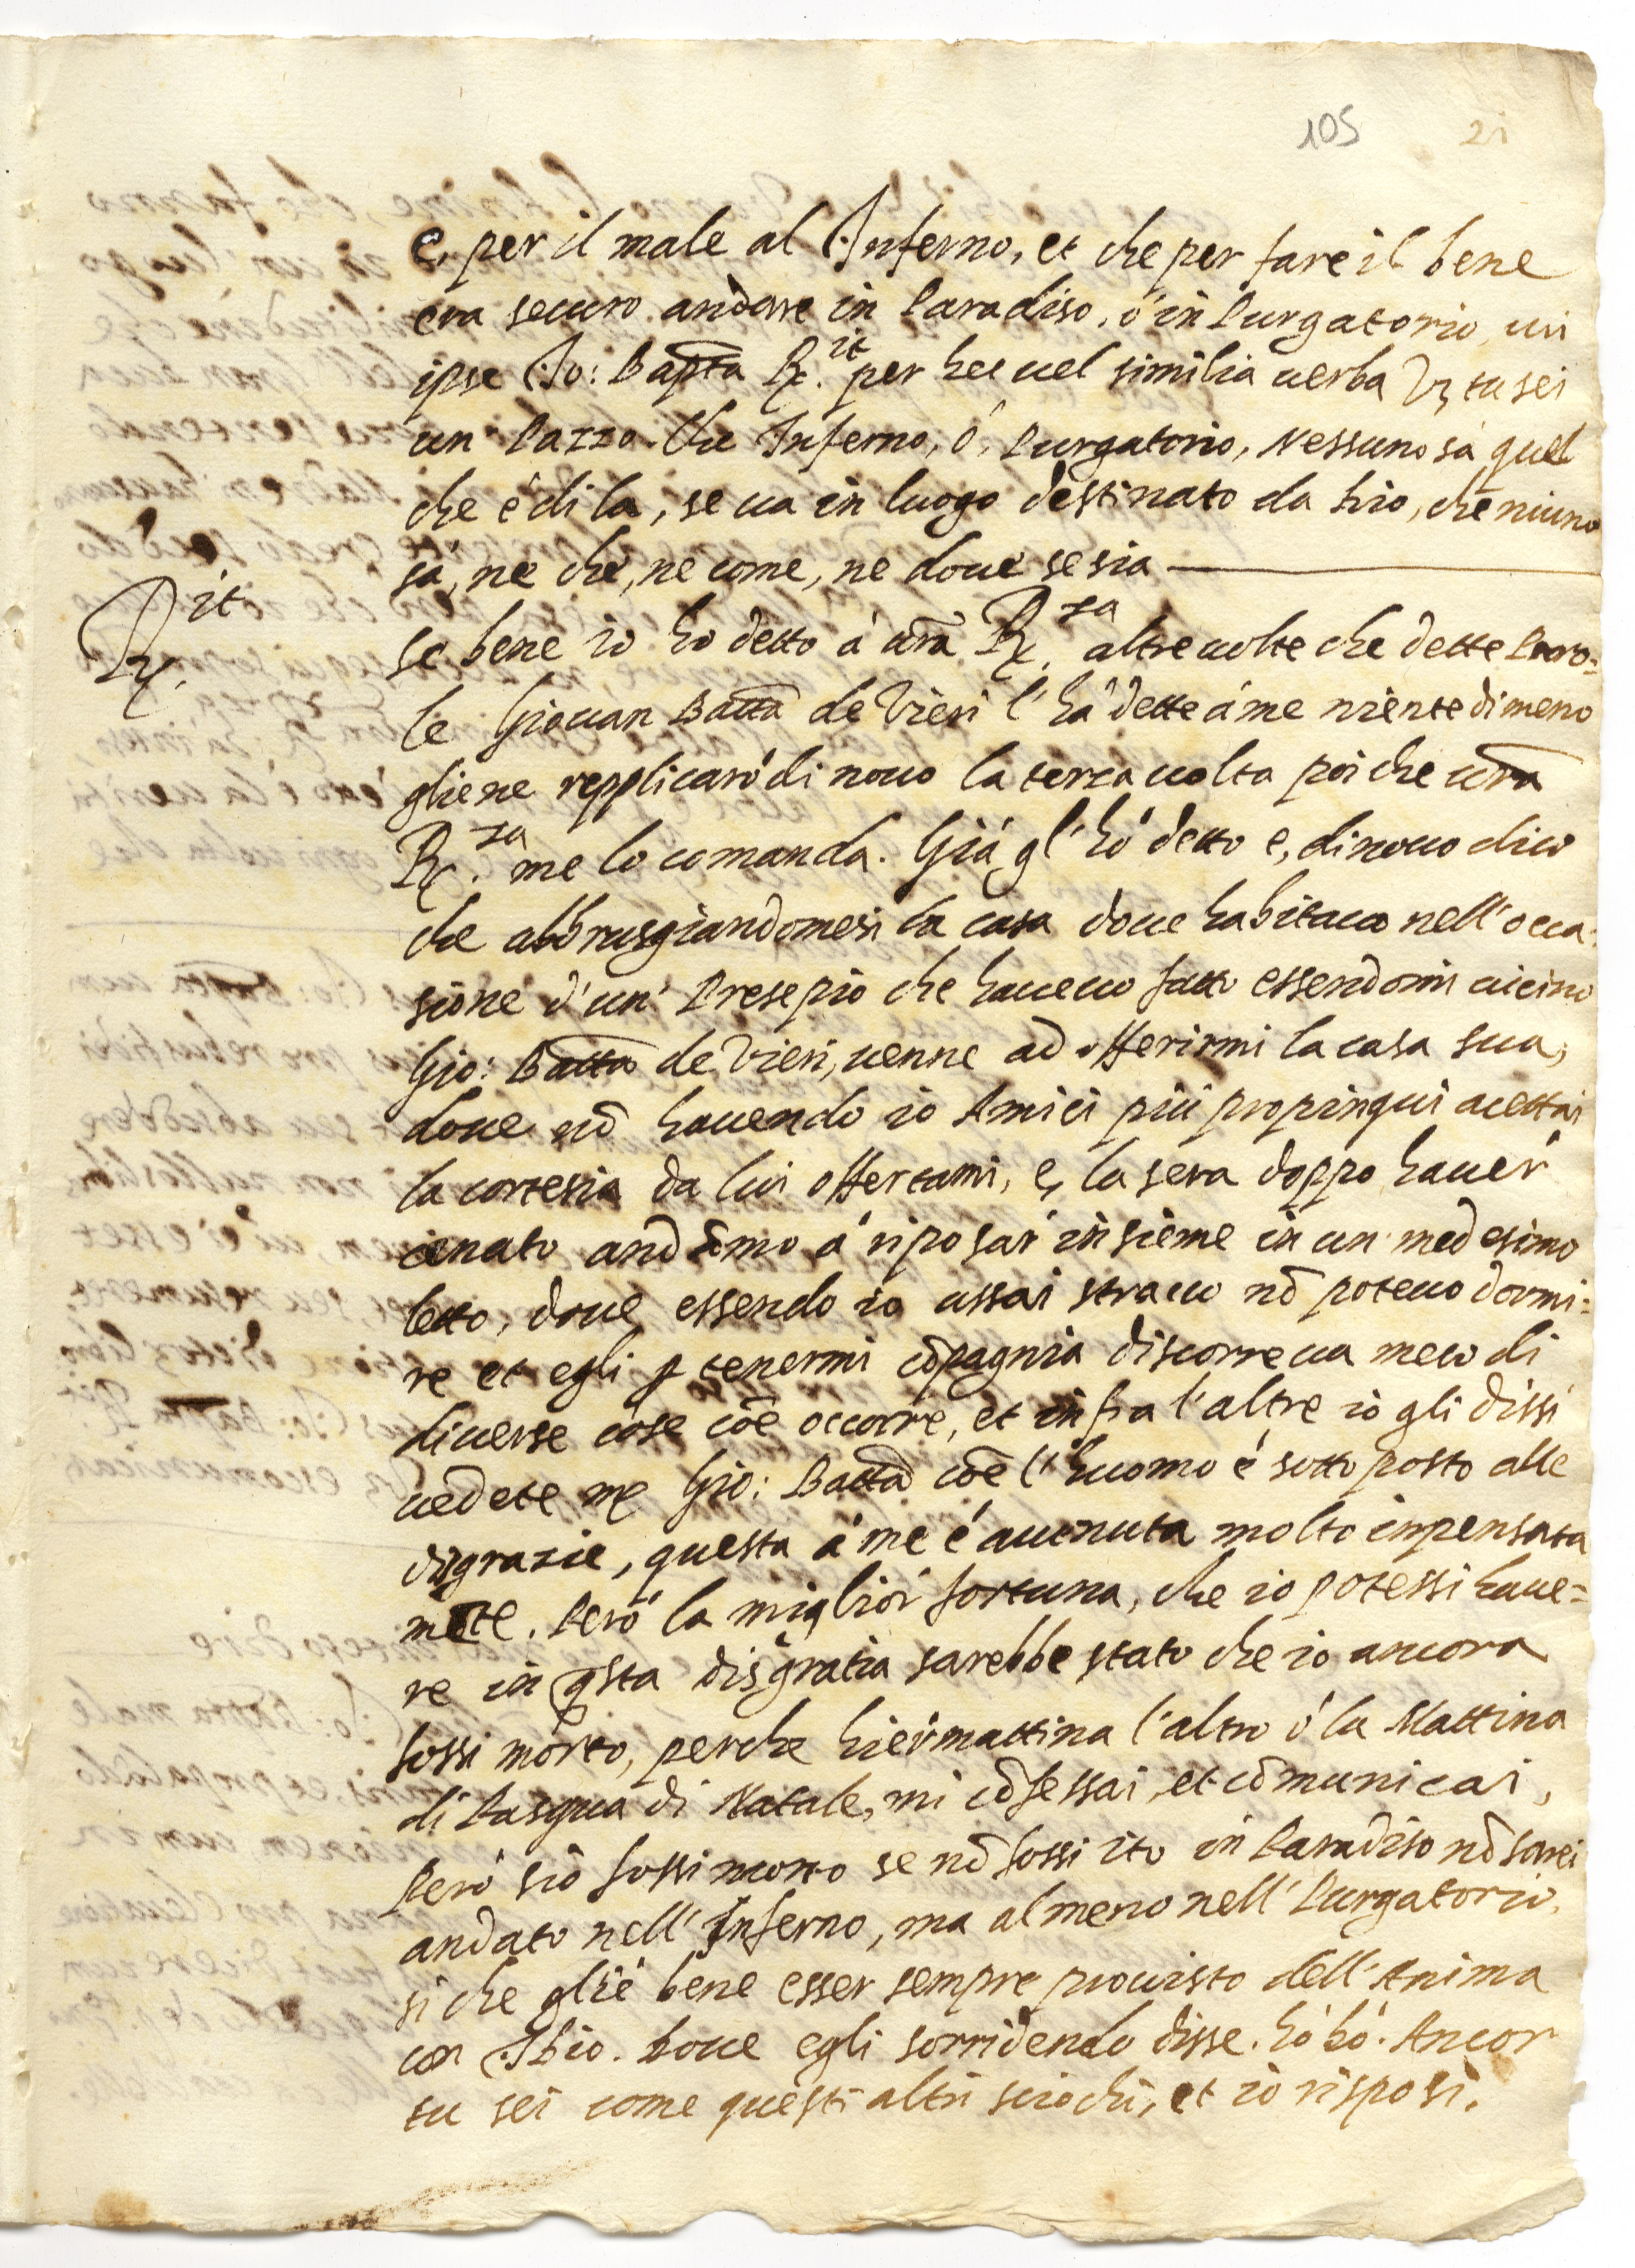 105 21
e, per il male al Inferno, et che per fare il bene
era securo andare in Paradiso, ó in Purgatorio, cui
ipse Io: Bapta R.it per hec uel similia uerba Vz tu sei
un Pazzo. Che Inferno, ó, Purgatorio, Nessuno sà quel
che é di la, se ua in luogo destinato da Dio, che niuno
sá, ne che, ne come, ne doue se sia
R.it
se bene io ho detto á ura R.za altre uolte che dette Paro=
le Giouan Batta de Vieri l'há dette á me niente di meno
gliene repplicaró di nouo la terza uolta poi che ura
R.za me lo comanda. Giá gl'hó detto e, di nouo dico
che abbrusgiandomesi la casa doue habitauo nell'occa=
sione d'un' Presepio che haueuo fatto essendomi uicino
Gio: Batta de Vieri, uenne ad offerirmi la casa sua,
doue nō hauendo io Amici piú propinqui acettai
la cortesia da lui offertami, e, la sera doppo hauer
cenato andāmo á riposar insieme in un medesimo
letto, doue essendo io assai stracco nō poteuo dormi=
re et egli p tenermi cōpagnia discorreua meco di
diuerse cose cōe occorre, et infra l'altre io gli dissi
uedete mē Gio: Batta cōe l'huomo é sottoposto alle
disgrazie, questa á me é auenuta molto inpensata
mēte. Peró la miglior fortuna, che io potessi haue=
re in qsta disgratia sarebbe stato che io ancora
fossi morto, perche hiermattina l'altro ó la Mattina
di Pasqua di Natale, mi cōfessai, et cōmunicai,
Peró s'io fossi morto se nō fossi ito in Paradiso nō sarei
andato nell'Inferno, ma almeno nell'Purgatorio,
si che glié bene esser sempre prouisto dell'Anima
con Idio. Doue egli sorridendo disse. hó bó. Ancor
tu sei come questi altri sciochi, et io risposi.